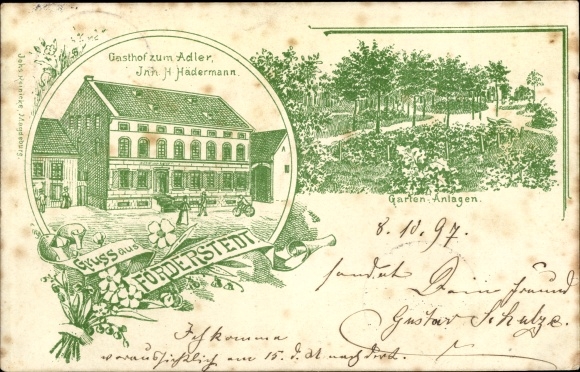 Gasthof zum Adler,
Inh. H. Hadermann.
Johs Heinicke, Magdeburg.
Garten-Anlagen.
Gruss aus
FÖRDERSTEDT
8.10.97.
sendet Dein Freund
Gustav Schulze.
Ich komme
voraussichlich am 15. d. M nach dort.